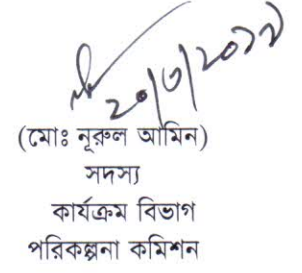 ২০/৩/২০১৭
(মোঃ নূরুল আমিন)
সদস্য
কার্যক্রম বিভাগ
পরিকল্পনা কমিশন